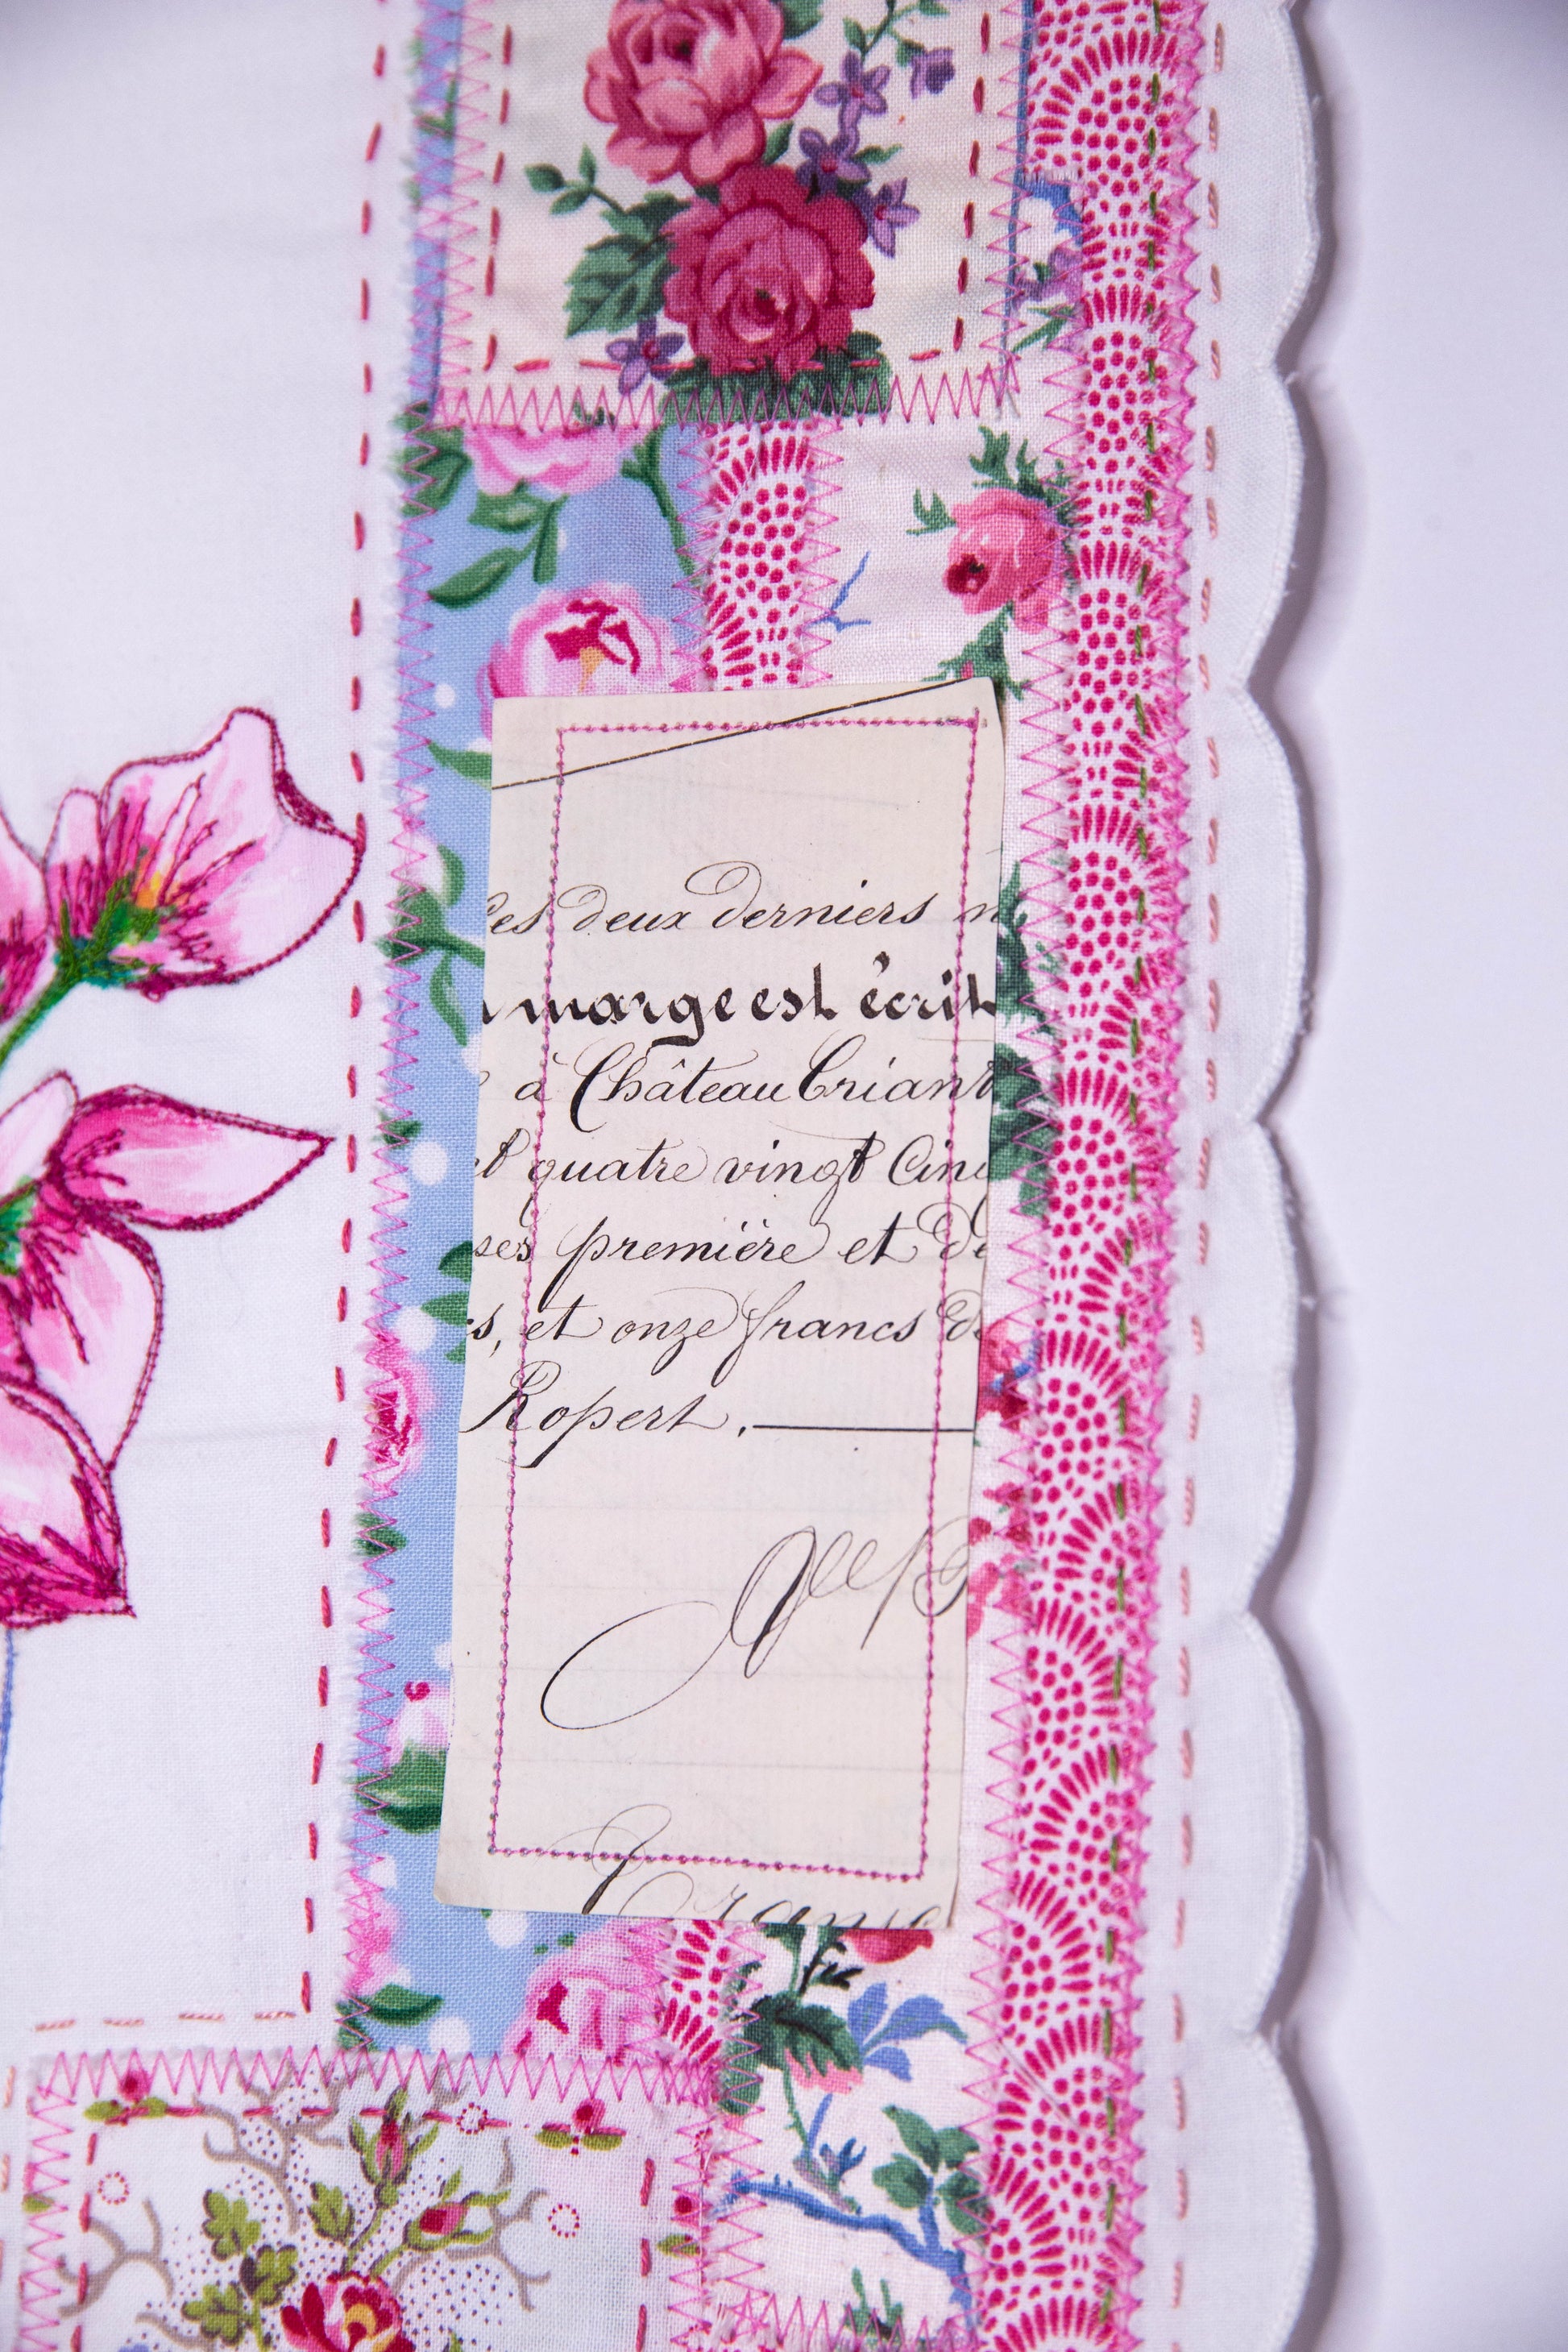 les deux derniers
marge est écrit
à Château briant
et quatre vingt Cinq
ses première et de
s, et onze francs de
Ropert.